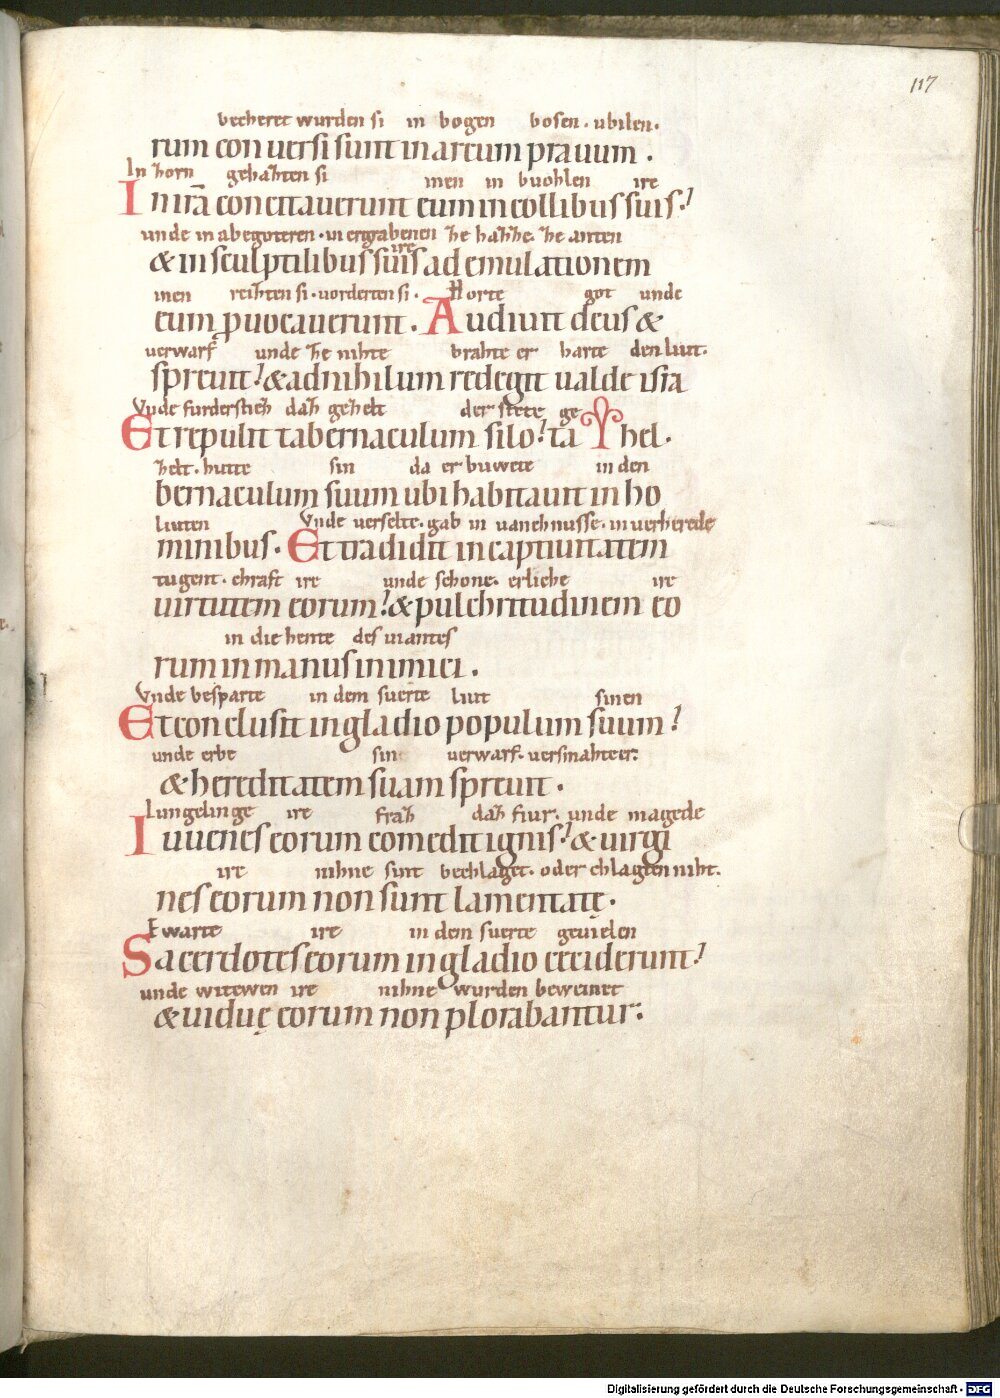 117
becheret wurden si in bogen bosen . ubilen.
rum conuersi sunt in arcum prauum .
In horn gehahten si inen in buohlen ire
In irā concitauerunt eum in collibus suis .
unde in abegoteren . in ergrabenen ire he hahhe. he anten
& in sculptilibus suis ad emulationem
inen reihten si . uorderten si . Horte got unde
eum ꝓuocauerunt . Audiuit deus &
verwarf unde he nihte brahte er harte den liut.
spreuit ! & ad nihilum redegit ualde isra
Vnde furderstieh dah gehelt der stete ge
Et repulit tabernaculum silo ! ta hel .
helt . hutte sin da er buwete in den
bernaculum suum ubi habitauit in ho
liuten Vnde verselte . gab in uanchnusse . in uerherede
minibus . Et tradidit in captiuitatem
tugent . chraft ire unde schone . erliche ire
uirtutem eorum ! & pulchritudinem eo
in die hente des uiantes
rum in manus inimici .
Vnde besparte in dem suerte liut sinen
Et conclusit in gladio populum suum !
unde erbe sin uerwarf . uersmahteer.
& hereditatem suam spreuit .
Iungelinge ire frah dah fiur . unde magede
Iuuenes eorum comedit ignis ! & uirgi
ire nihne sint bechlaget . oder chlagten niht.
nes eorum non sunt lamentatę .
Ewarte ire in dem suerte geuielen
Sacerdotes eorum in gladio ceciderunt !
unde witewen ire nihne wurden beweinet
& uiduę eorum non plorabantur .
Digitalisierung gefördert durch die Deutsche Forschungsgemeinschaft - DFG